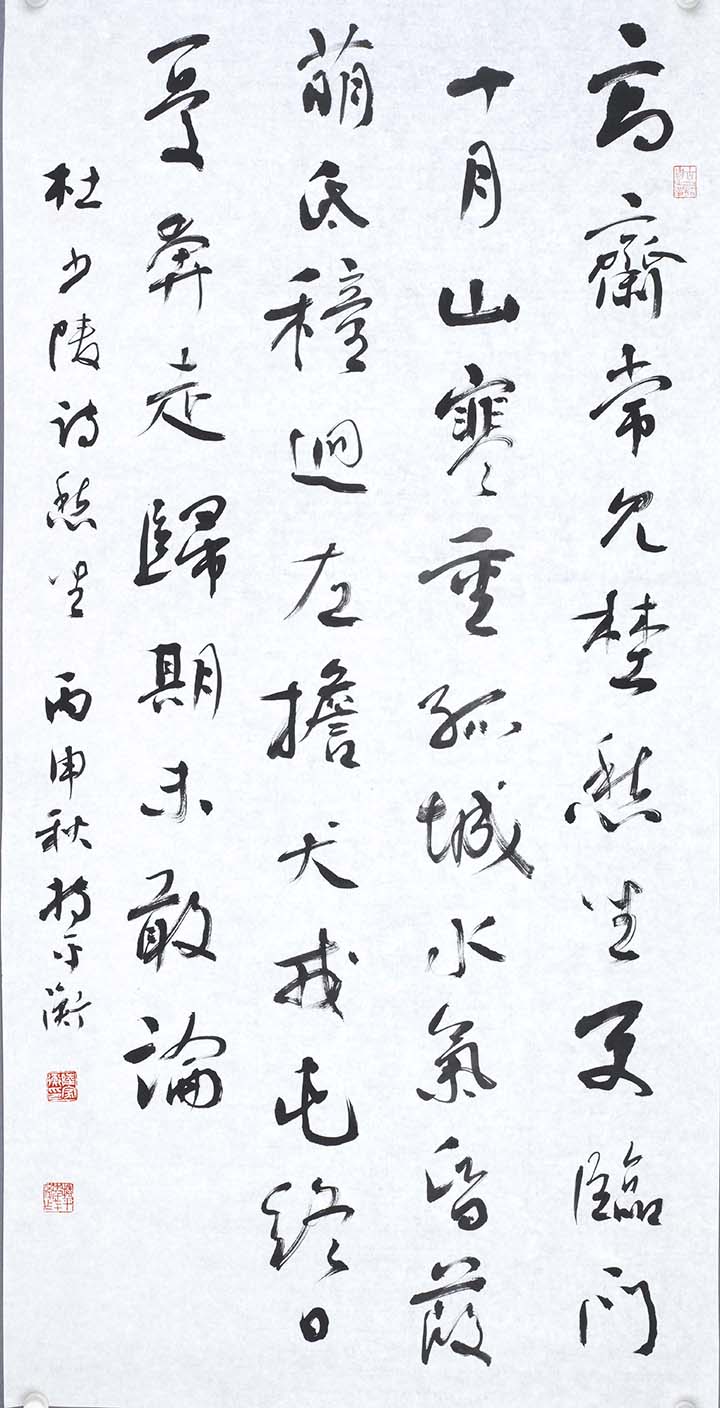 高齋常見埜愁坐更臨門
十月山寒重孤城水氣昏葭
萌氐穜迥左擔犬戎屯終日
憂奔走歸期未敢論
杜少陵詩愁坐 丙申秋